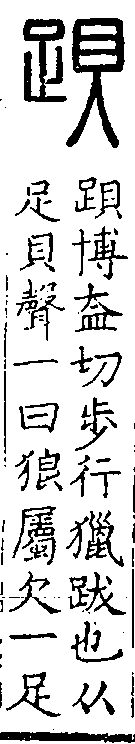 䟺
䟺博盖切步行獵跋也从
足貝聲一曰狼屬欠一足